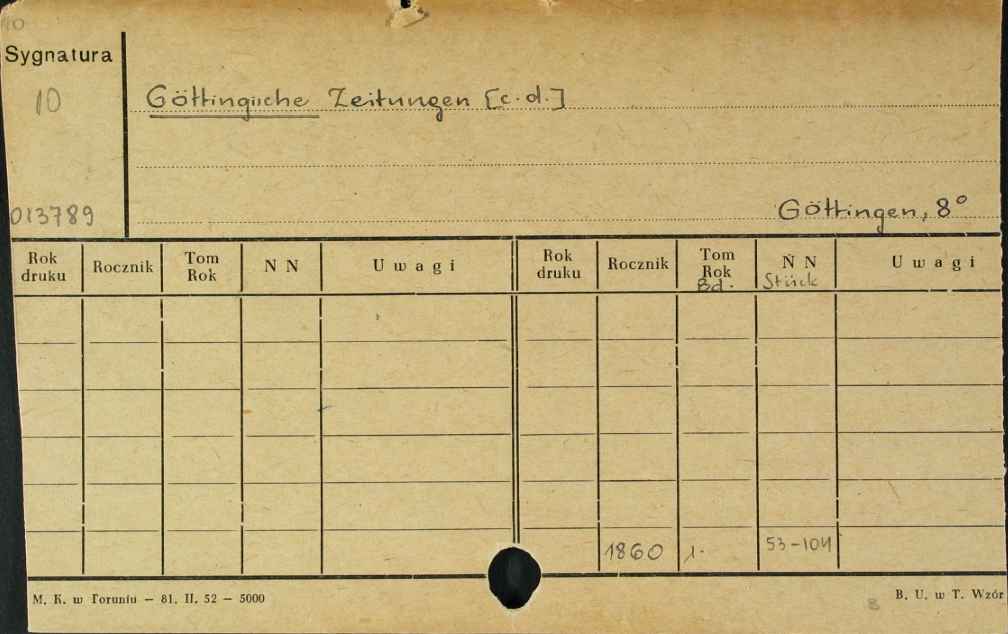 10
Sygnatura
10
Göttingische Zeitungen [c.d.]
013789
Göttingen, 8°
Rok druku Rocznik Tom Rok N N Uwagi Rok druku Rocznik Tom Rok Bd. N N Stück Uwagi
1860 1. 53-104
M. K. w Toruniu — 81. II. 52 — 5000
B. U. w T. Wzór
8